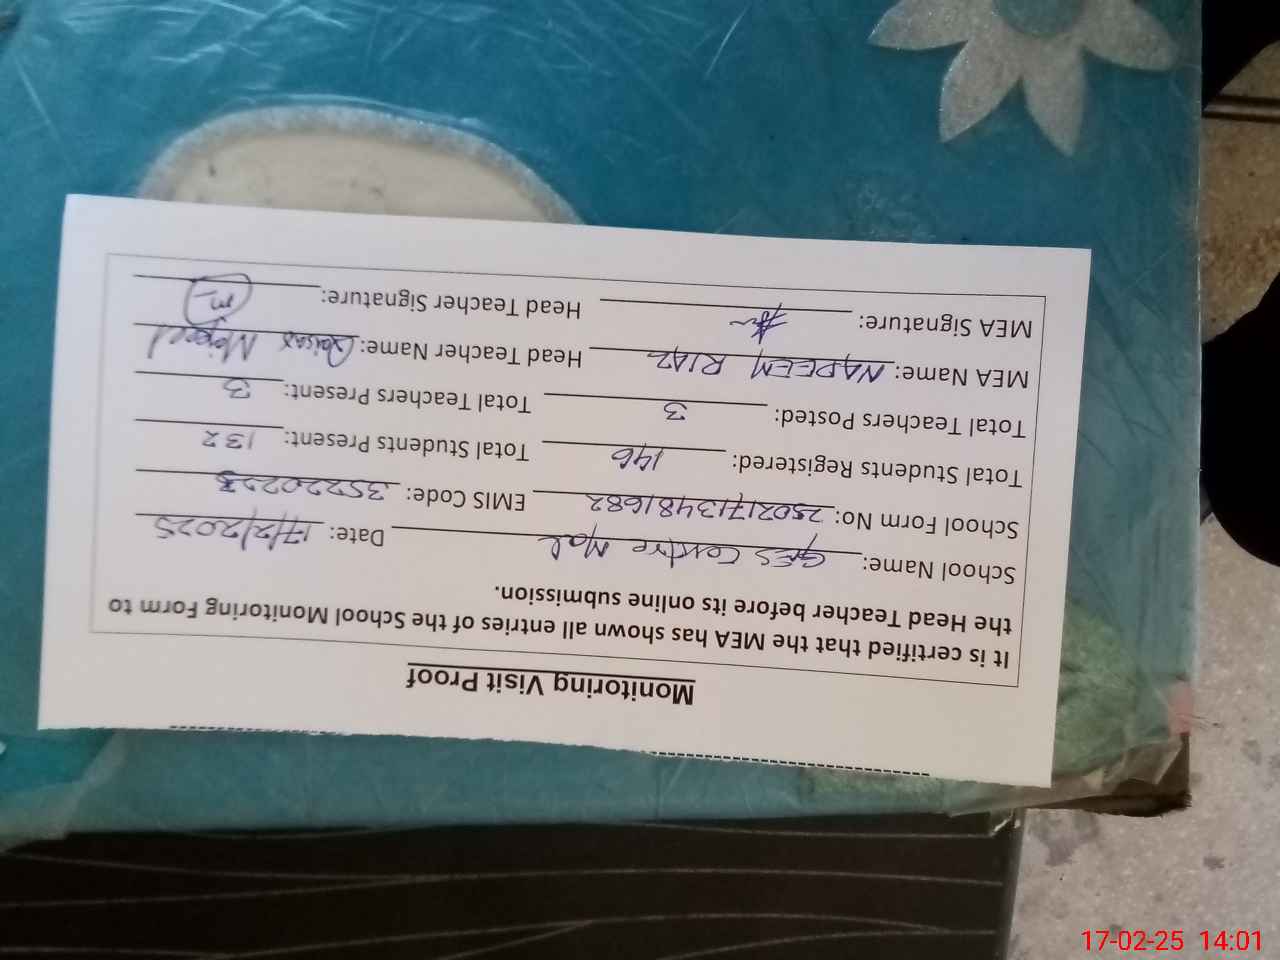 Monitoring Visit Proof
It is certified that the MEA has shown all entries of the School Monitoring Form to
the Head Teacher before its online submission.
School Name: GES Mal Date: 17/2/2025
School Form No: 2502171348 1682 EMIS Code: 35220223
Total Students Registered: 146 Total Students Present: 132
Total Teachers Posted: 3 Total Teachers Present: 3
MEA Name: NADEEM RIAZ Head Teacher Name: Majeed
MEA Signature: Head Teacher Signature:
17-02-25 14:01